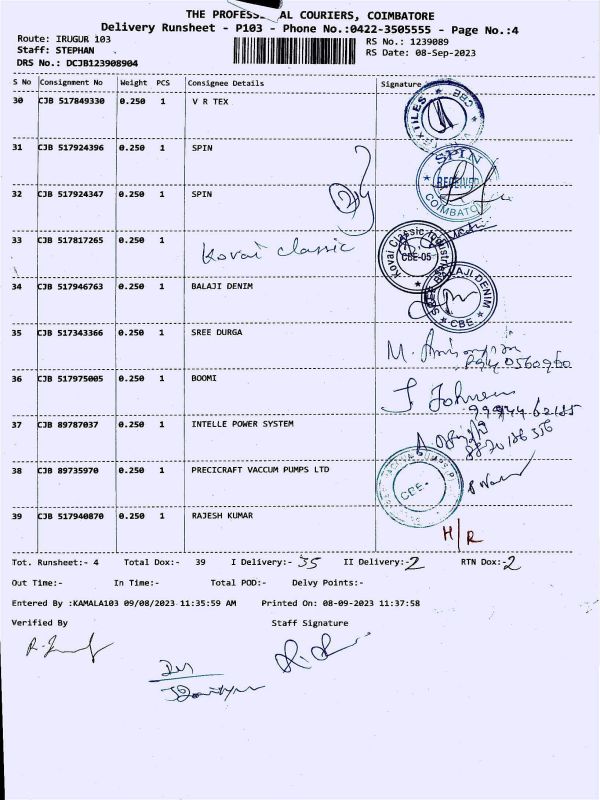 THE PROFESSIONAL COURIERS, COIMBATORE
Delivery Runsheet - P103 - Phone No.:0422-3505555 - Page No.:4
Route: IRUGUR 103
RS No.: 1239089
Staff: STEPHAN
RS Date: 08-Sep-2023
DRS No.: DCJB123908904
S No Consignment No Weight PCS Consignee Details Signature
30 CJB 517849330 0.250 1 V R TEX
TEXTILES CBE
31 CJB 517924396 0.250 1 SPIN
SPIN RECEIVED COIMBATORE
32 CJB 517924347 0.250 1 SPIN
33 CJB 517817265 0.250 1 Kovai classic
Kovai Classic Industries CBE-05
34 CJB 517946763 0.250 1 BALAJI DENIM
SREE BALAJI DENIM CBE
35 CJB 517343366 0.250 1 SREE DURGA
M.
36 CJB 517975005 0.250 1 BOOMI
J
37 CJB 89787037 0.250 1 INTELLE POWER SYSTEM
38 CJB 89735970 0.250 1 PRECICRAFT VACCUM PUMPS LTD
CBE-
39 CJB 517940870 0.250 1 RAJESH KUMAR
H/R
Tot. Runsheet:- 4 Total Dox:- 39 I Delivery:- 35 II Delivery:- 2 RTN Dox:- 2
Out Time:- In Time:- Total POD:- Delvy Points:-
Entered By :KAMALA103 09/08/2023 11:35:59 AM Printed On: 08-09-2023 11:37:58
Verified By Staff Signature